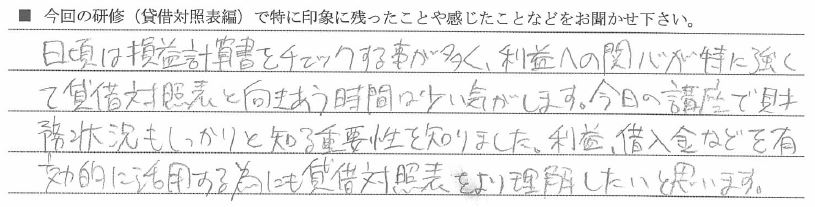 ■ 今回の研修（貸借対照表編）で特に印象に残ったことや感じたことなどをお聞かせ下さい。
日頃は損益計算書をチェックする事が多く、利益への関心が特に強く
て貸借対照表と向きあう時間は少い気がします。今日の講座で財
務状況もしっかりと知る重要性を知りました。利益、借入金などを有
効的に活用する為にも貸借対照表をより理解したいと思います。